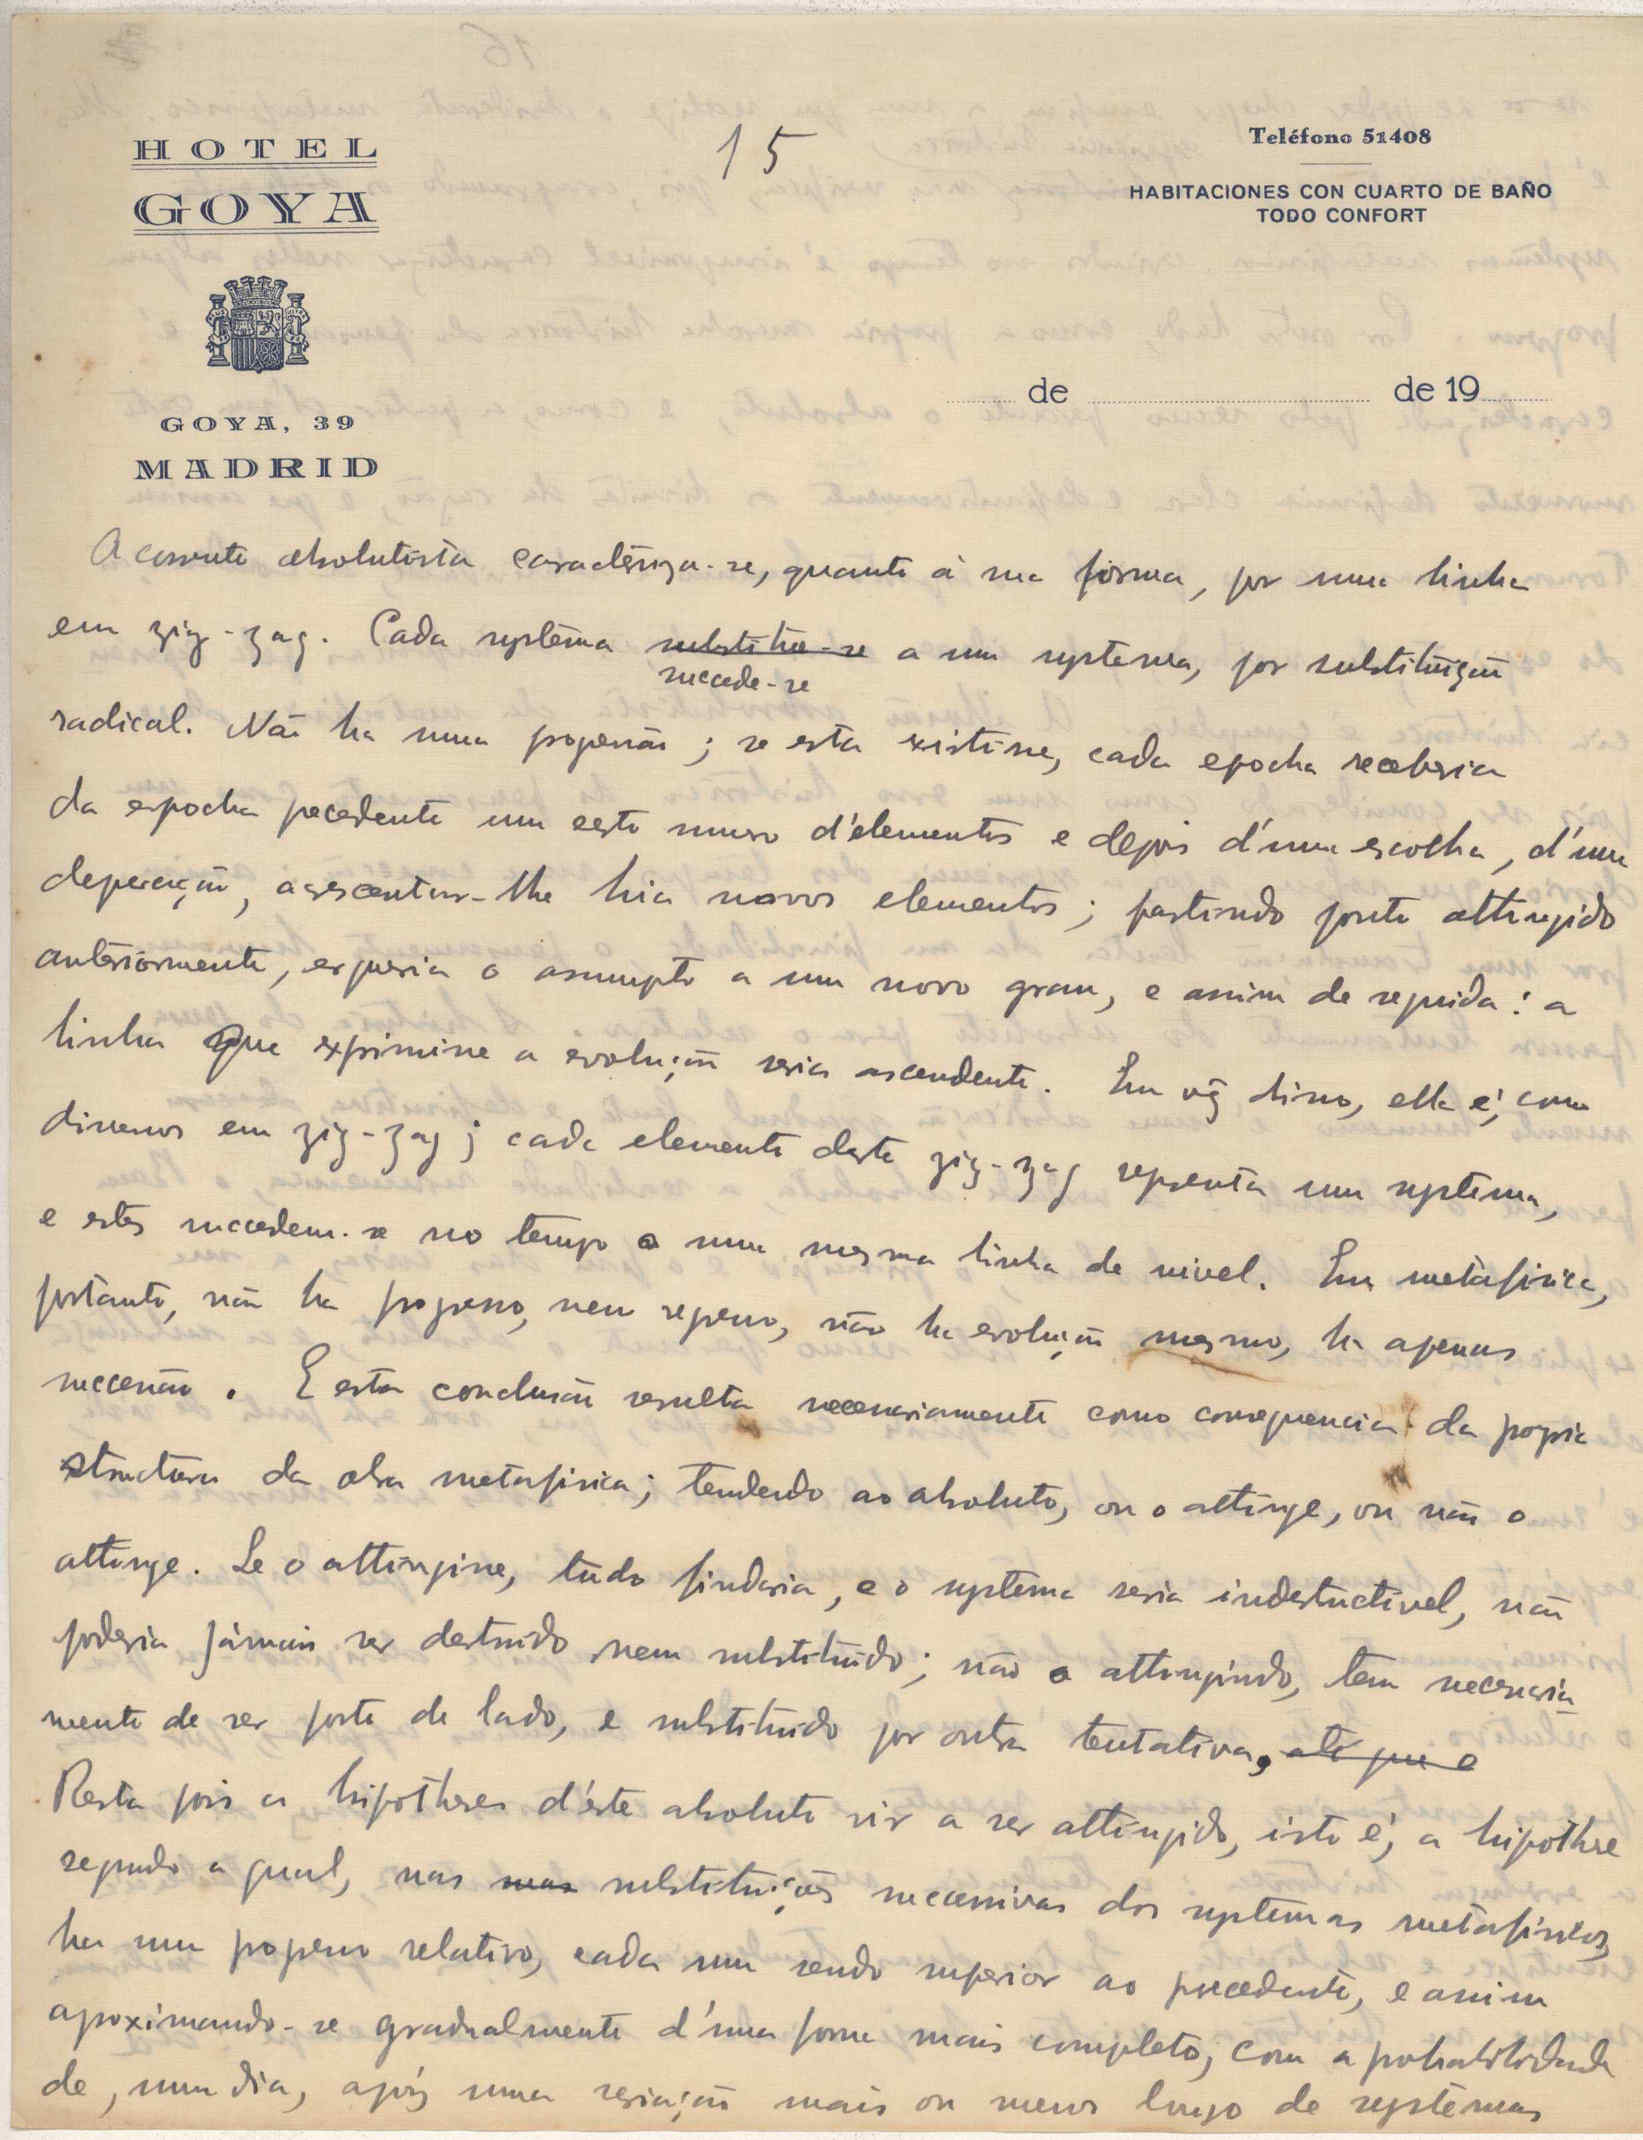 HOTEL
GOYA
GOYA, 39
MADRID
15
Teléfono 51408
HABITACIONES CON CUARTO DE BAÑO
TODO CONFORT
de de 19
A corrente absolutista caracteriza-se, quanto á sua forma, por uma linha
em zig-zag. Cada systema substitue-se a um systema, por substituição
succede-se
radical. Não ha uma progressão; se esta existisse, cada epocha receberia
da epocha precedente um certo numero d'elementos e depois d'uma escolha, d'uma
depuração, acrescentar-lhe hia novos elementos; partindo ponto attingido
anteriormente, ergueria o assumpto a um novo grau, e assim de seguida: a
linha que exprimisse a evolução seria ascendente. Em vez disso, ella é, como
dissemos em zig-zag; cada elemento deste zig-zag representa um systema,
e estes succedem-se no tempo a uma mesma linha de nivel. Em metafisica,
portanto, não ha progresso, nem regresso, não ha evolução mesmo, ha apenas
successão. E esta conclusão resulta necessariamente como consequencia da propria
structura da obra metafisica; tendendo ao absoluto, ou o attinge, ou não o
attinge. Se o attingisse, tudo findaria, e o systema seria indestructivel, não
poderia jámais ser destruido nem substituido; não o attingindo, tem necessaria-
mente de ser posto de lado, e substituido por outra tentativa, até que e
Resta pois a hipotheses d'éste absoluto vir a ser attingido, isto é, a hipothese
segundo a qual, nas suas substituições successivas dos systemas metafisicos,
ha um progresso relativo, cada um sendo superior ao precedente, e assim
aproximando-se gradualmente d'uma forma mais completa, com a probabilidade
de, num dia, após uma seriação mais ou menos longo de systemas